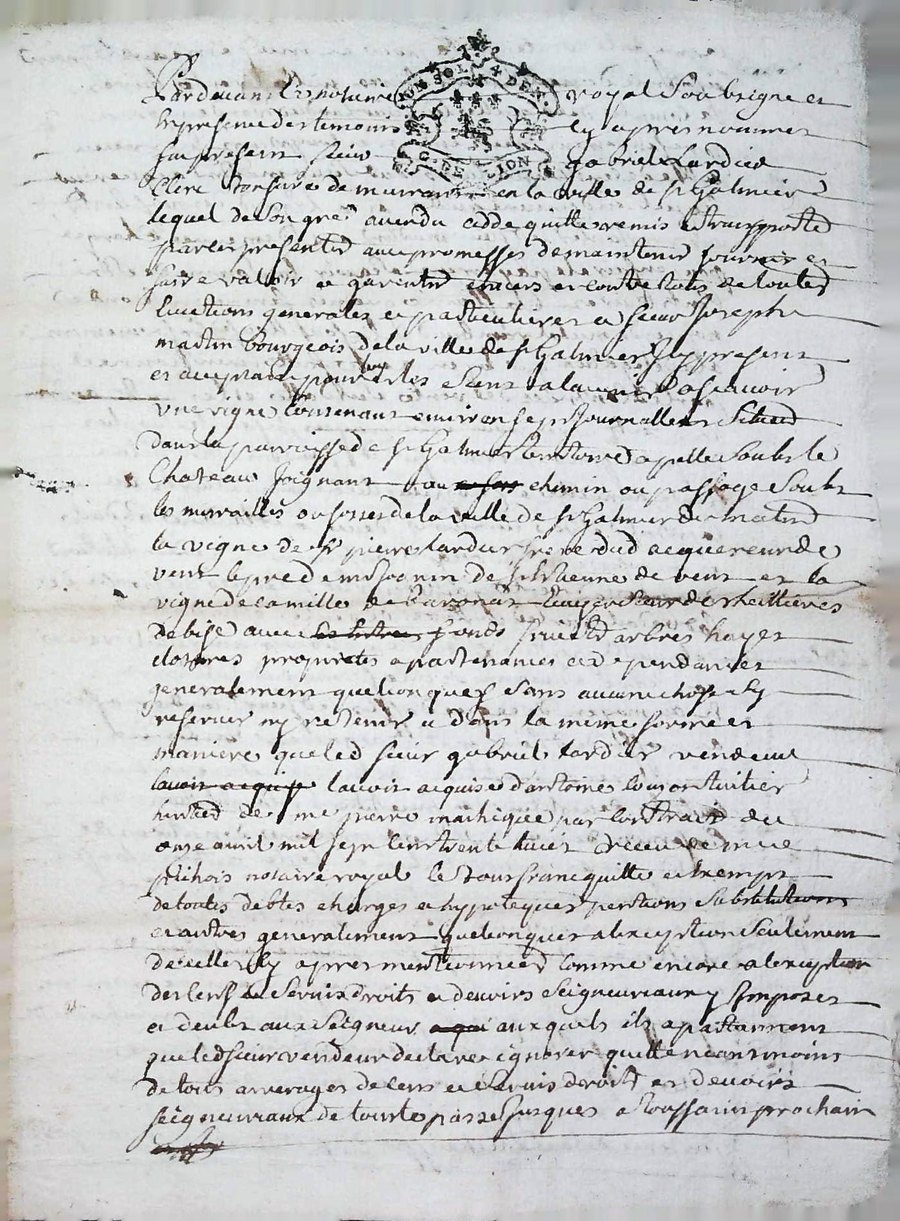 UN SOL 4 DEN.
G. DE LYON
Pardevant le notaire royal soubsigne et
en presence des temoins cy apres nommes
fut present sieur gabriel tardieu
clerc tonsure demeurant en la ville de st Galmier
lequel de son gre a vendu cedde quitte remis et transporte
par ces presentes avec promesses de maintenir jouir et
faire valoir et garentir envers et contre tous de toutes
evictions generales et particulieres a sieur Joseph
martin bourgeois de la ville de st Galmier Icy present
et acceptant pour luy et les siens a lavenir a scavoir
une vigne contenant environ sept journallees Située
dans la parroisse de st Galmier territoire apelle soubs le
Chateau Joignant au chemin ou passage soubs
les murailles ou fosses de la ville de st Galmier de matin
la vigne de sr pierre tardieu frere dud acquereur de
vent le pré de de st Etienne de vent et la
vigne de camille de
de bise avec fonds fruits arbres hayes
clotures proprietes apartenances et dependances
generalement quelconques sans aucune chose sy
reserver ny retenir et dans la meme forme et
maniere que led sieur gabriel tardieu vendeur
lavoit acquise dantoine
de me pierre par contrait du
onze avril mil sept cent trente huict receu de me
notaire royal le tout franc quitte et exempt
de toutes debtes charges et hypoteques pentions substitutions
et autres generalement quelconques a lexception seulement
de celles cy apres mentionnées comme encore a lexception
des cens et servis droits et devoirs seigneuriaux y Imposes
et deubs aux seigneurs auxquels ils apartiennent
que led sieur vendeur declare ignorer quitte neantmoins
de tous arrerages de cens et servis droits et devoirs
seigneuriaux de toute passe jusques a toussaint prochain